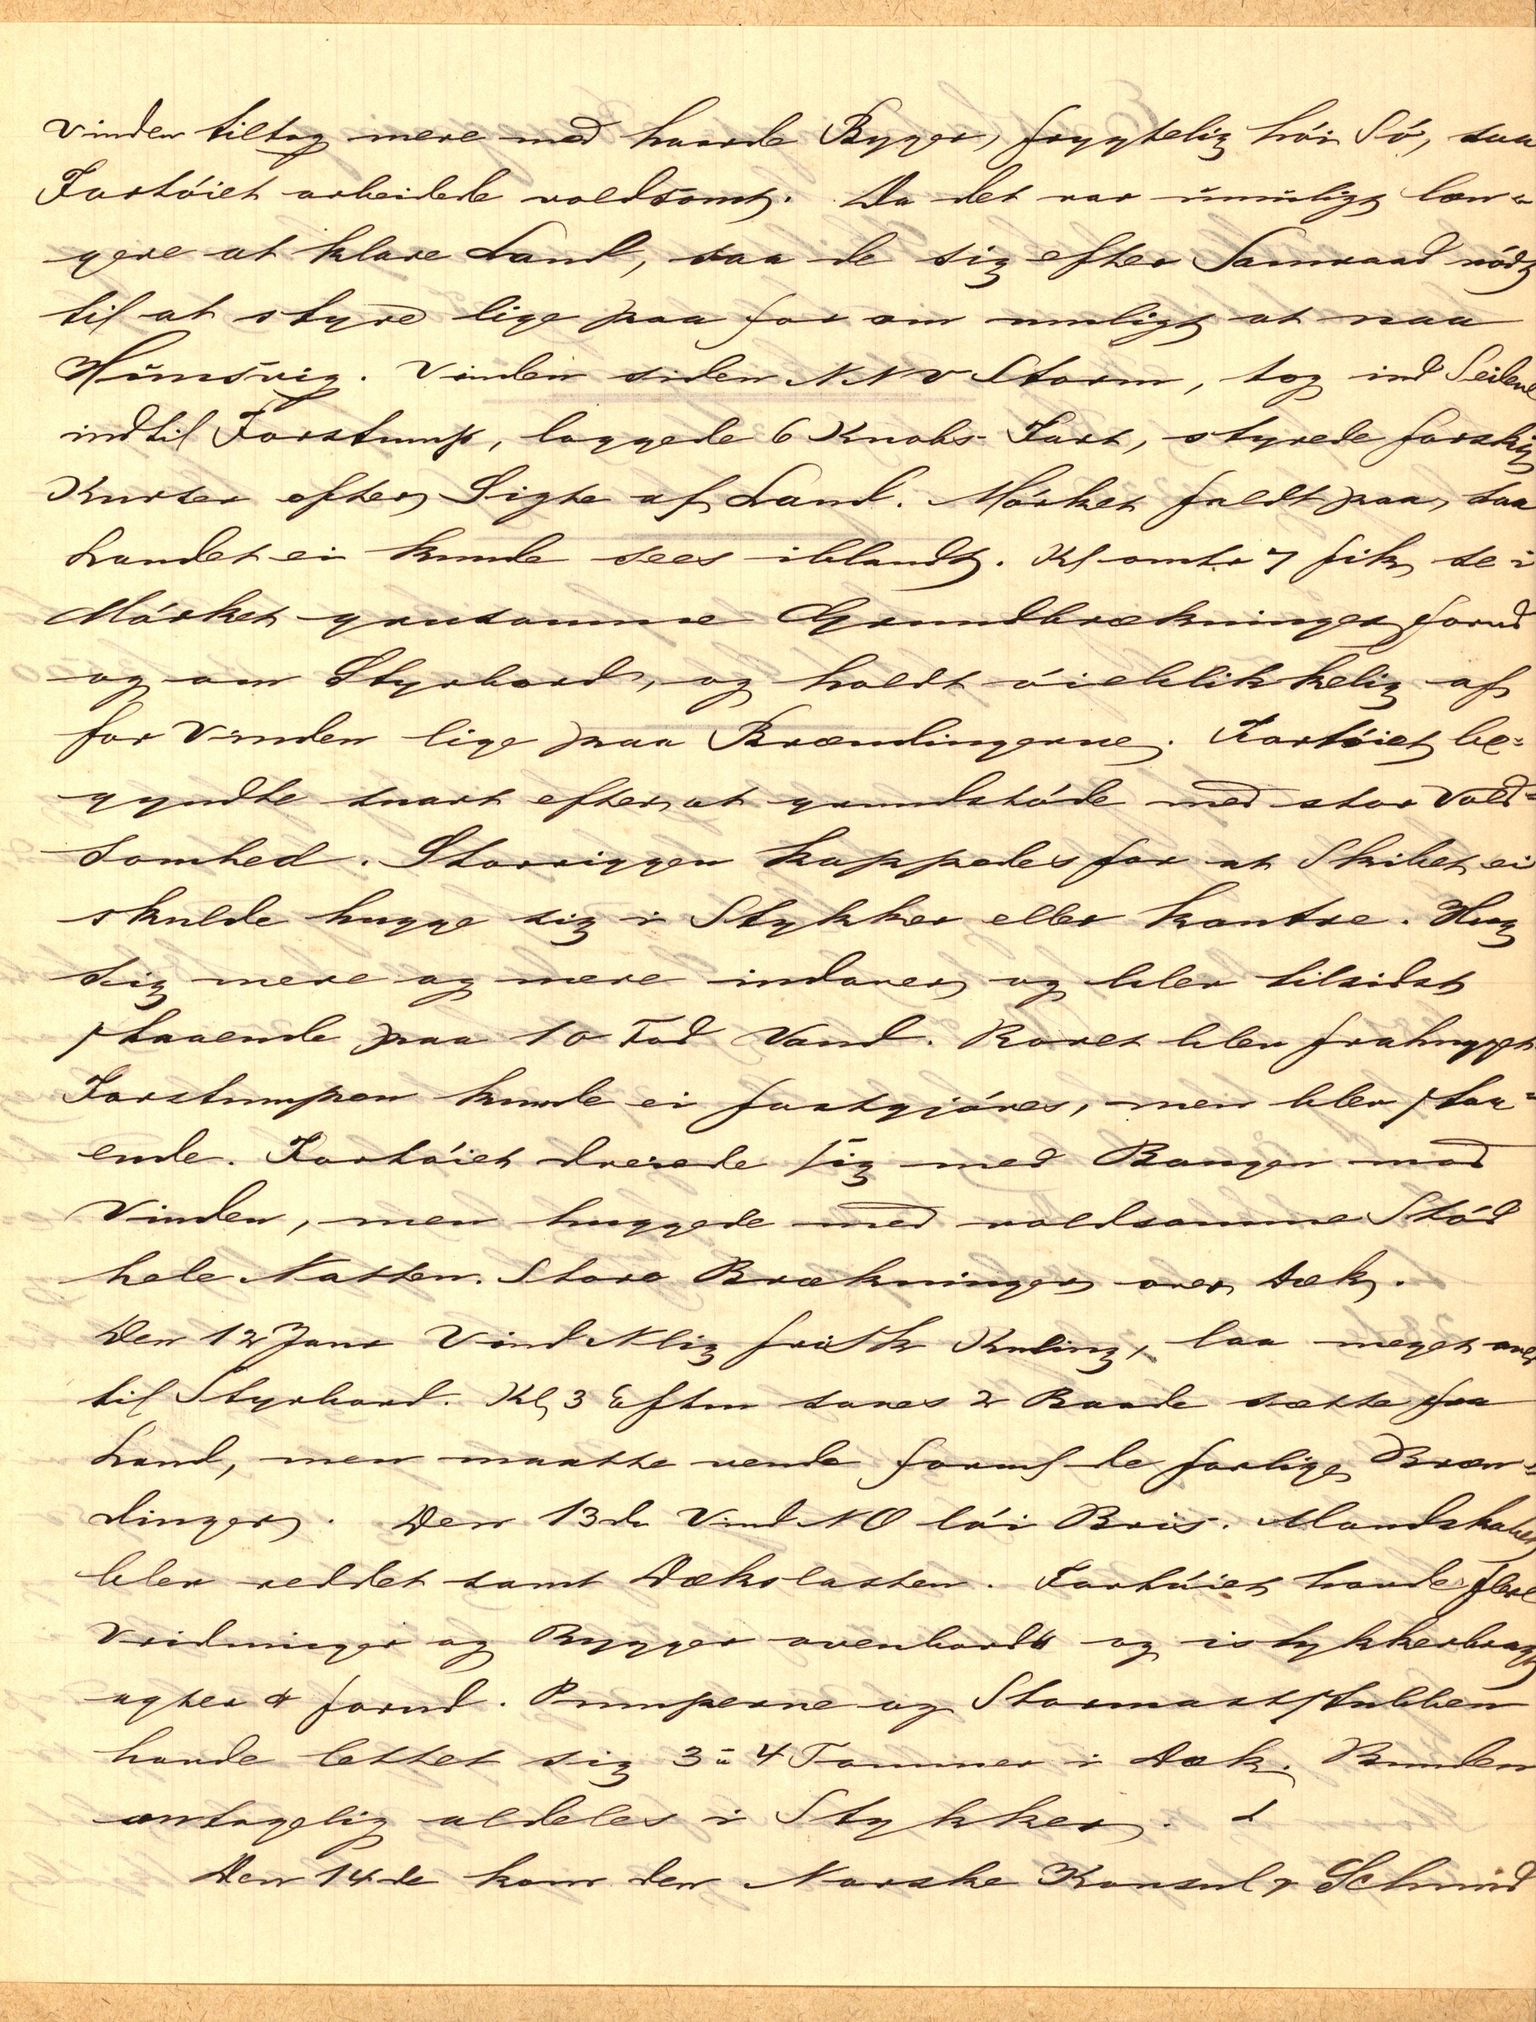 Vinden tiltog mere med haarde Byger, frygtelig höi Sö, saa
Fartöiet arbeidede voldsomt. Da det var umuligt læn=
gere at klare Land, saa de sig efter Samraad nödt
til at styre lige paa for om muligt at naa
Hunsvig. Vinden siden NNV Storm, tog ind Seilene
indtil Forstump, loggede 6 Knobs Fart, styrede forskjg
Kurser efter Sigte af Land. Mörket faldt paa, saa
Landet ei kunde sees iblandt. Kl omtr 7 fik se i
Mörket grusomme Grundbrækninger forud
og om Styrbord, og holdt öieblikkelig af
for Vinden lige paa Brændingerne. Fartöiet be=
gyndte snart efter at grundstöde med stor Vold=
somhed. Storriggen kappedes for at Skibet ei
skulde hugge sig i Stykker eller kantre. Hug
sig mere og mere indover og blev tilsidst
staaende paa 10 Fod Vand. Roret blev frahugget
Forstumpen kunde ei fastgjöres, men blev staa=
ende. Fartöiet dreiede sig med Bougen mod
Vinden, men huggede med voldsomme Stöd
hele Natten. Store Brækninger over Dæk.
Den 12 Janr Vind Nlig frisk Kuling, laa meget over
til Styrbord. Kl 3 Eftm saaes 2 Baade sætte fra
Land, men maatte vende formd de farlige Bræn=
dinger. Den 13de Vind NO löi Bris. Mandskabet
blev reddet samt Dækslasten. Fartöiet havde flere
Vridninger og Bygger ovenbords og istykkerbragt
agter & forud. Pumperne og Stormaststubben
havde lettet sig 3 à 4 Tommer i Dæk. Bunden
antagelig aldeles i Stykker.
Den 14de kom den Norske Konsul & Schmid